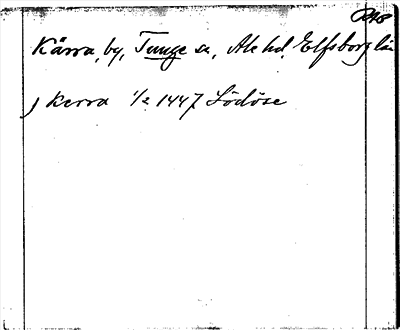 Kärra, by, Tunge sn, Ale hd. Elfsborg län
j Kerra ½ 1447 Lödöse